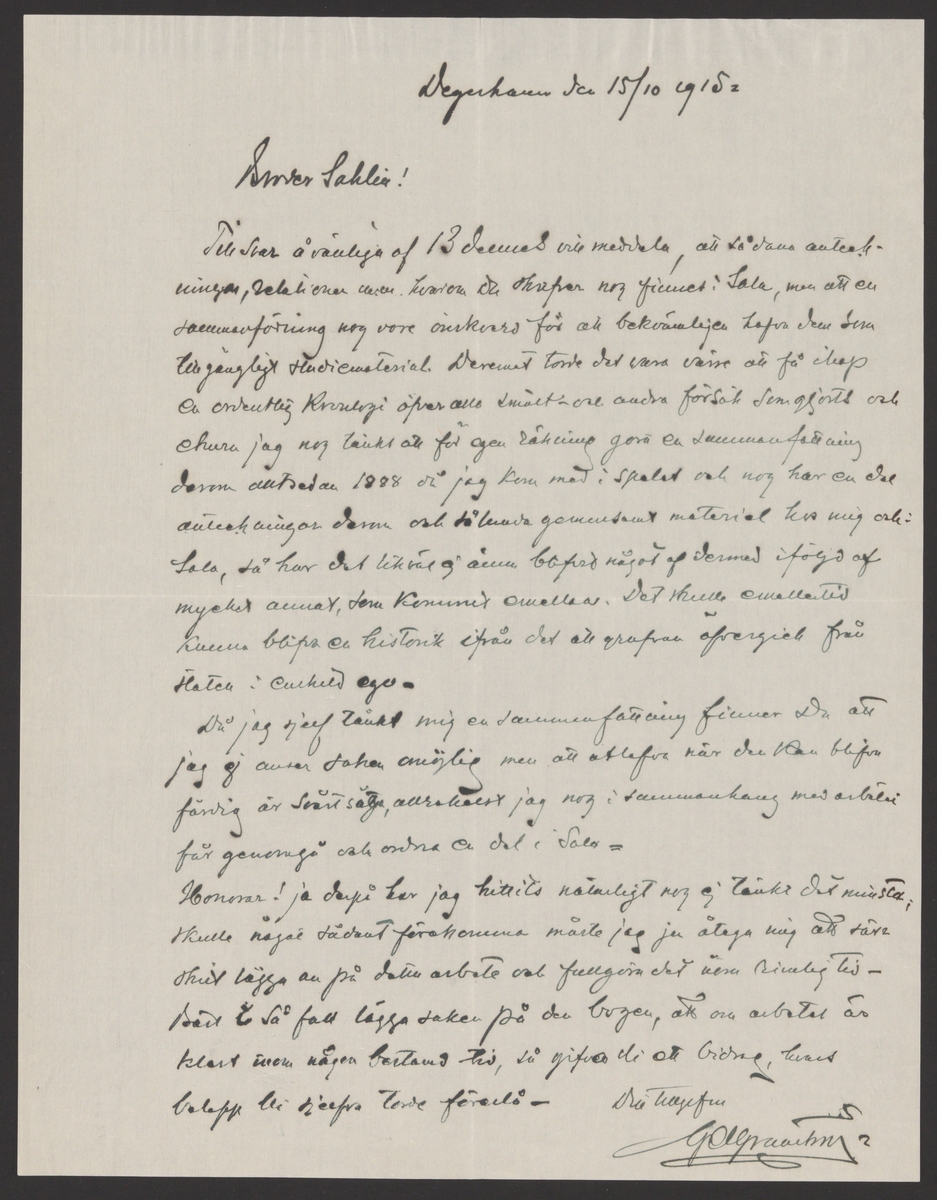 Degerhamn den 15/10 1915
Broder Sahlin!
Till svar å vänliga af 13 dennes vill meddela, att sådana anteck-
ningar, relationer m.m. hvarom Du skrifver nog finnes i Sala, men att en
sammanföring nog vore önskvärd för att bekvämligen hafva dem som
tillgängligt studiematerial. Deremot torde det vara värre att få ihop
en ordentlig kronologi öfver alla smält- och andra försök som gjorts och
ehuru jag nog tänkt att för egen räkning göra en sammanfattning
derom alltsedan 1888 då jag kom med i spelet och nog har en del
anteckningar derom och sålunda gemensamt material hos mig och i
Sala, så har det likväl ej ännu blifvit något af dermed i följd af
mycket annat, som kommit emellan. Det skulle emellertid
kunna blifva en historik ifrån det att grufvan öfvergick från
staten i enskild ego -
Då jag sjelf tänkt mig en sammanfattning finner Du att
jag ej anser saken omöjlig men att utlofva när den kan blifva
färdig är svårt säga, allrahelst jag nog i sammanhang med arbetet
får genomgå och ordna en del i Sala =
Honorar! ja derpå har jag hittills naturligt nog ej tänkt det minsta;
skulle något sådant förekomma måste jag ju åtaga mig att sär-
skilt lägga an på detta arbete och fullgöra det inom rimlig tid -
Bäst i så fall lägga saken på den bogen, att om arbetet är
klart inom någon bestämd tid, så gifves ett bidrag, hvars
belopp Ni sjelfva torde föreslå -
Din tillgifne